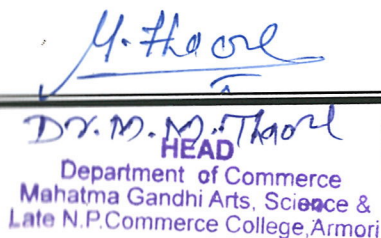 M. Thaore
Dr. M. M. Thaore
HEAD
Department of Commerce
Mahatma Gandhi Arts, Science &
Late N.P.Commerce College,Armori